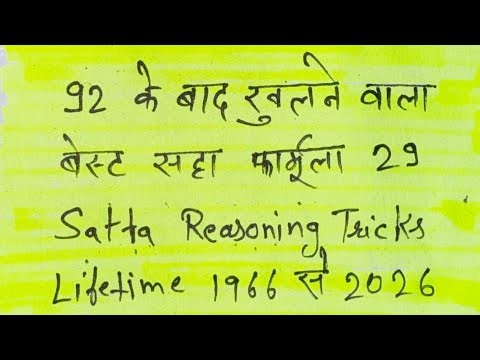 92 के बाद खुलने वाला
बेस्ट सट्टा फार्मूला 29
Satta Reasoning Tricks
Lifetime 1966 से 2026